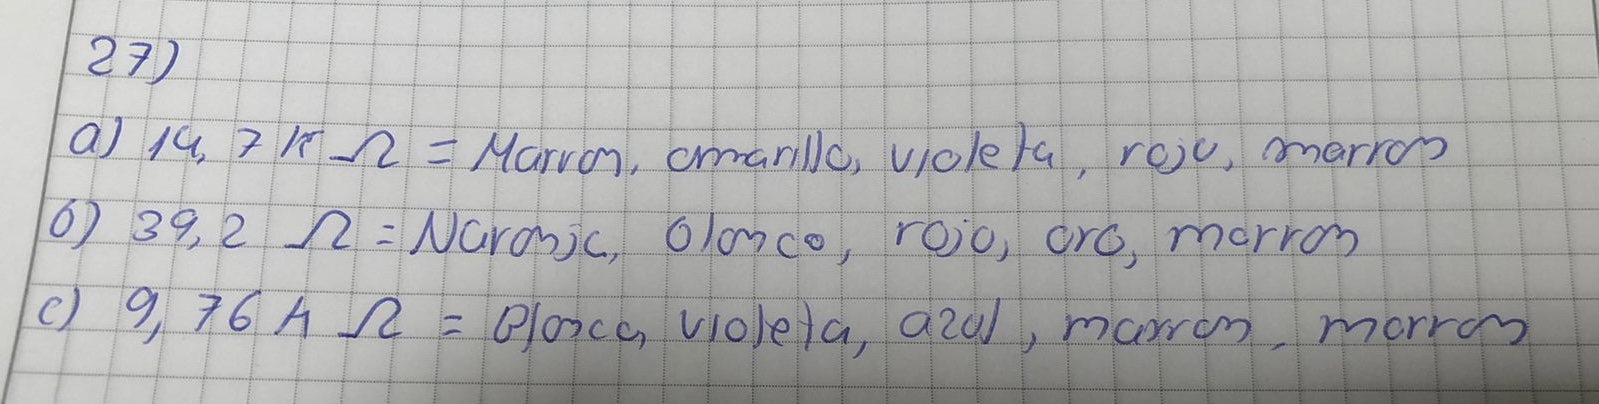 27)
a) 14,7 K Ω = Marron, amarillo, violeta, rojo, marron
b) 39,2 Ω = Naranja, blanco, rojo, oro, marron
c) 9,76 K Ω = Blanco, violeta, azul, marron, marron